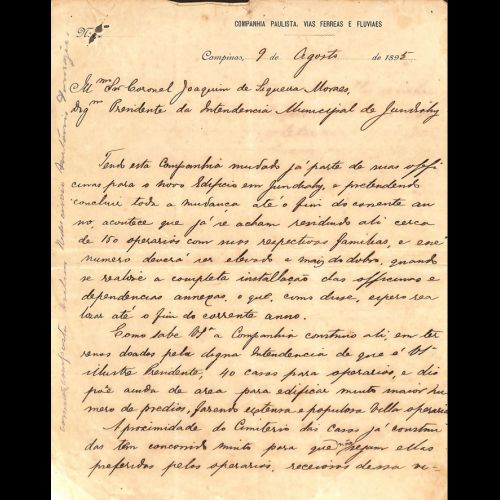 COMPANHIA PAULISTA, VIAS FERREAS E FLUVIAES
N.
Campinas, 9 de Agosto de 1895
Sr. Coronel Joaquim de Siqueira Moraes,
Presidente da Intendencia Municipal de Jundiahy
Tendo esta Companhia mudado já parte de suas offi
cinas para o novo Edificio em Jundiahy, e pretendendo
concluir toda a mudança até o fim do corrente an
no, acontece que já se acham residindo ali cerca
de 150 operarios com suas respectivas familias, e esse
numero deverá ser elevado a mais do dobro, quando
se realise a completa installação das officinas e
dependencias annexas, o que, como disse, espero rea
lizar até o fim do corrente anno.
Como sabe a Companhia construio ali, em ter
renos doados pela digna Intendencia de que é
illustre Presidente, 40 casas para operarios, e dis
põe ainda de area para edificar muito maior nu
mero de predios, fazendo extensa e populosa Villa operaria
A proximidade do Cemiterio das casas já construi
das tem concorrido muito para que não sejam ellas
preferidas pelos operarios, receiosos dessa vi-